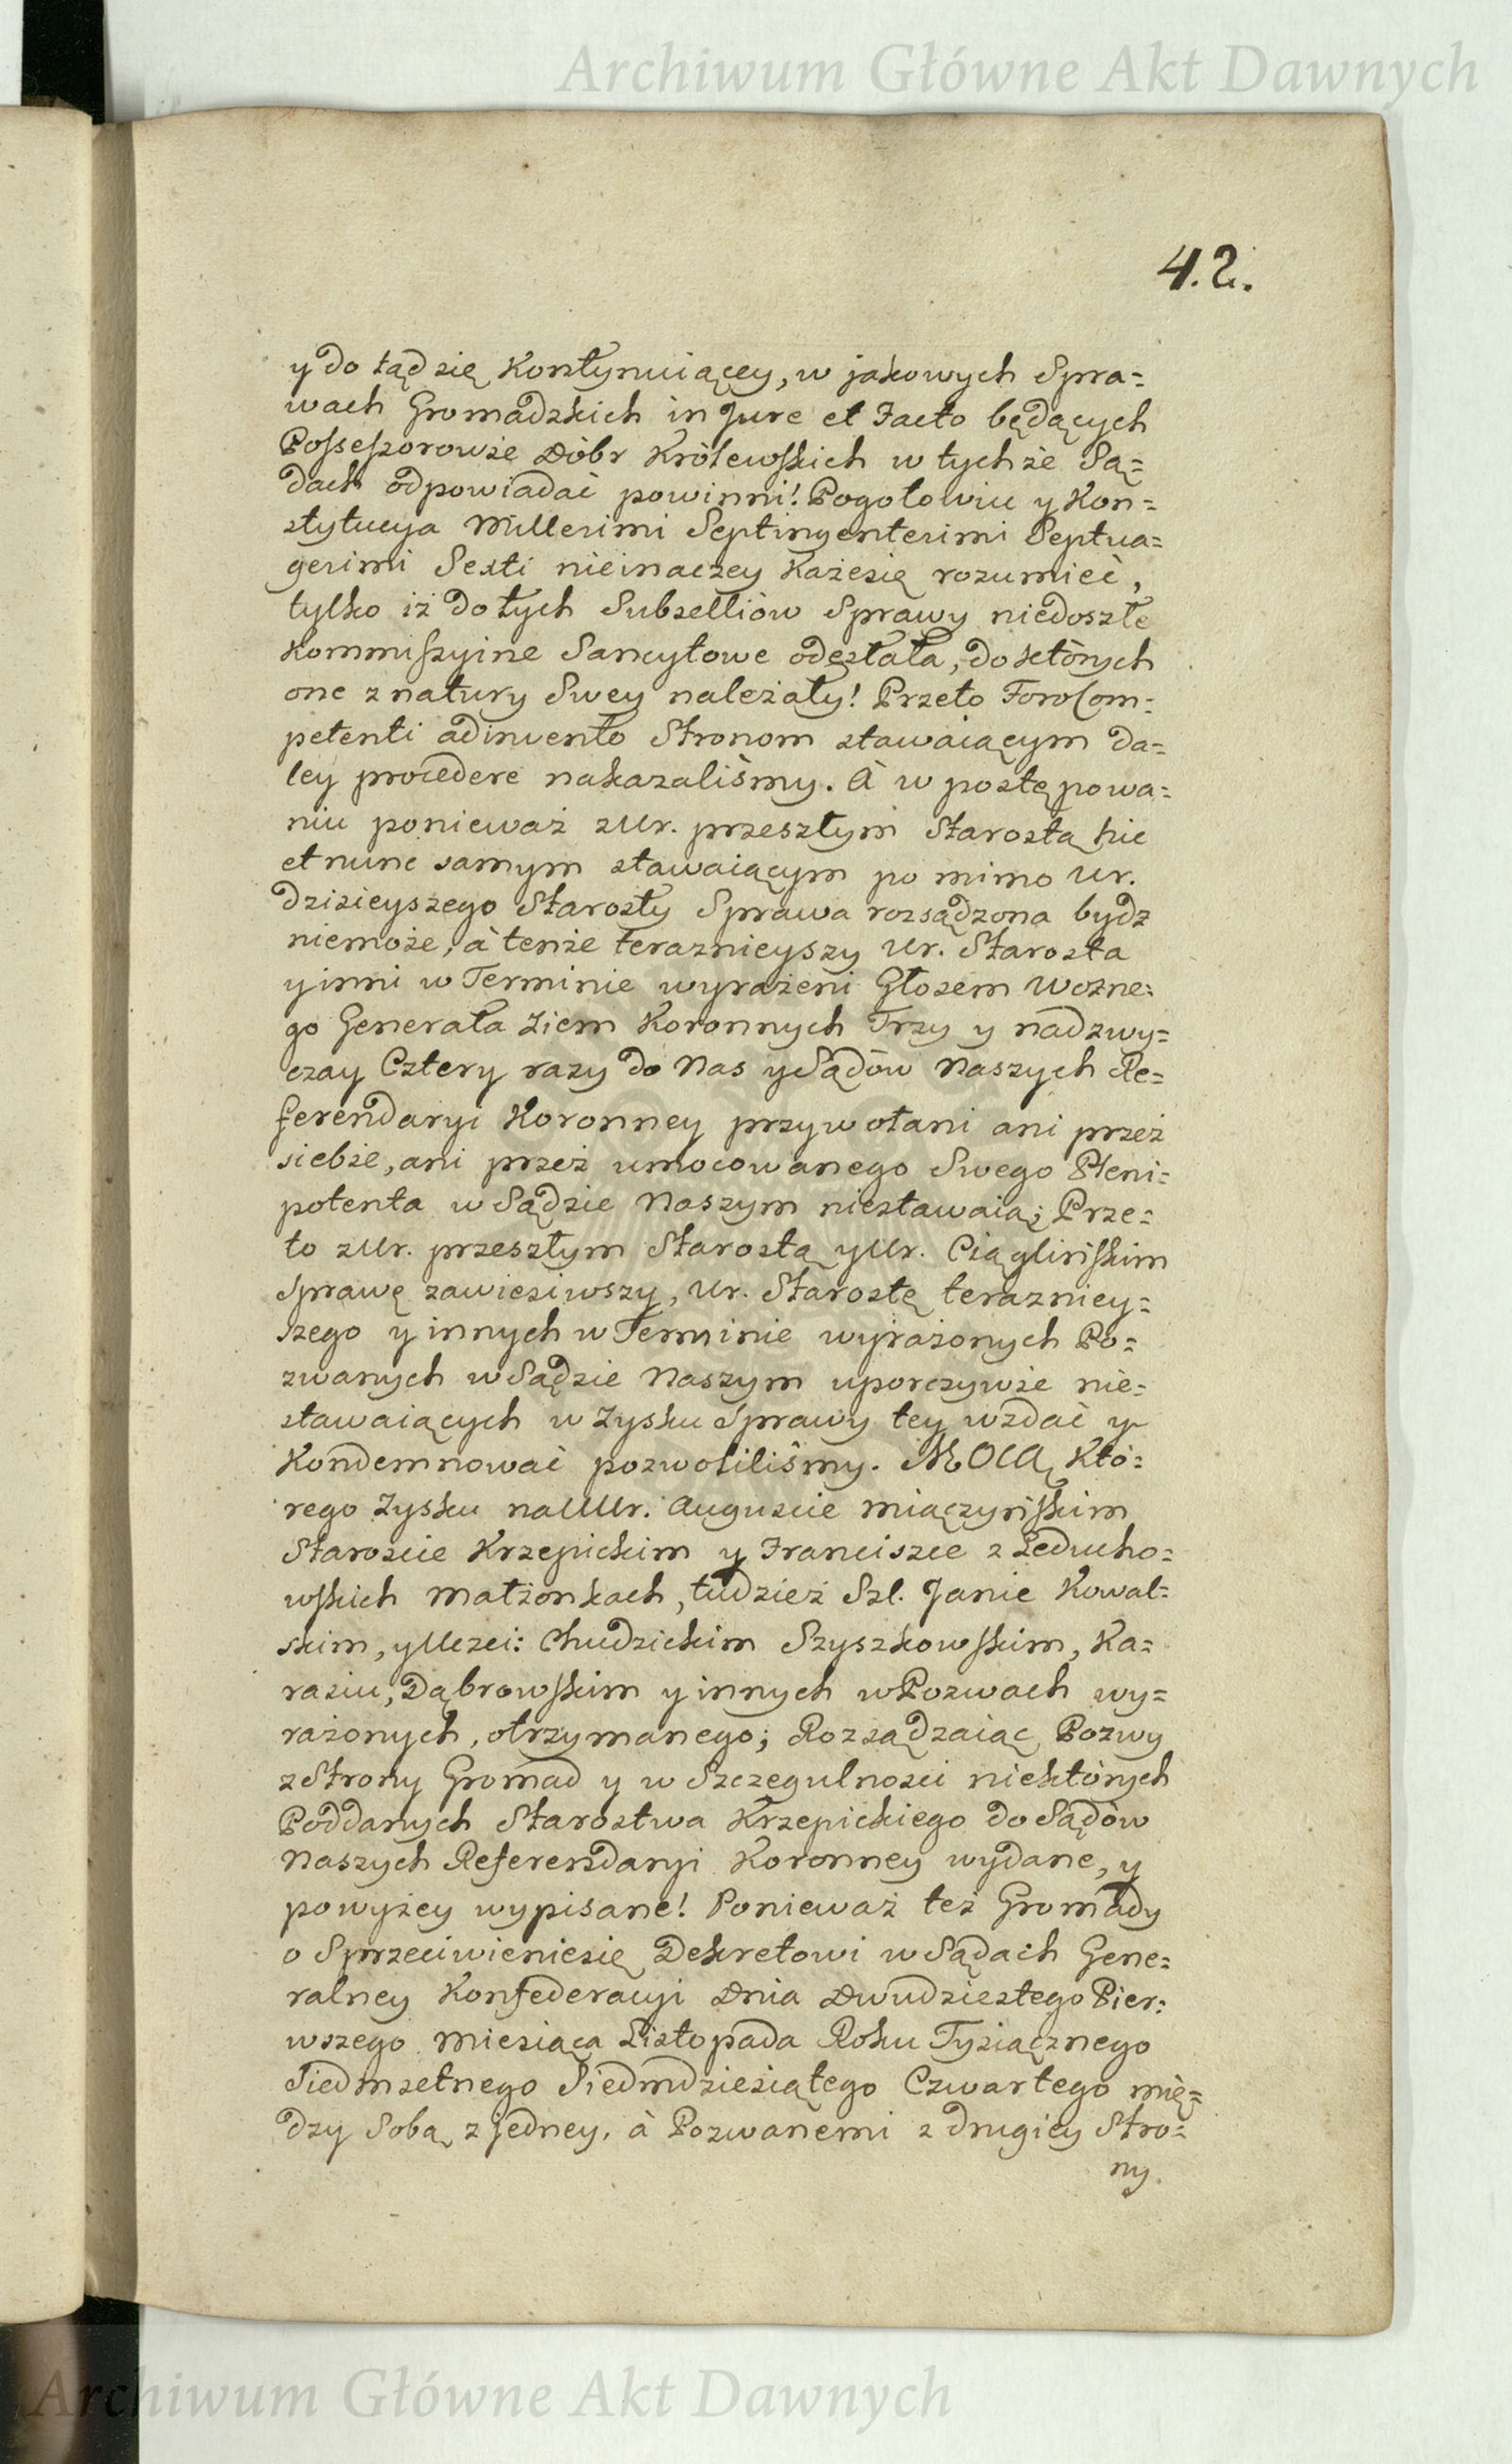 Archiwum Główne Akt Dawnych
42.
y do tąd się Konstynuiącey, w jakowych Spra=
wach Gromadzkich in Jure et Facto będących
Possessorowie Dóbr Królewskich w tychże Są=
dach odpowiadać powinni! Pogotowiu y Kon=
stytucya Millesimi Septingentesimi Septua=
gesimi Sexti nieinaczey każesię rozumieć,
tylko iż do tych Subselliów Sprawy niedoszłe
Kommissyine Sancytowe odesłała, do których
one z natury Swey należały! Przeto Foro Com=
petenti adinvento Stronom stawaiącym da=
ley procedere nakazaliśmy. à w postępowa=
niu ponieważ z Ur. przeszłym Starostą hic
et nunc samym stawaiącym po mimo Ur.
dzisieyszego Starosty Sprawa rozsądzona bydz
niemoże, à tenże teraznieyszy Ur. Starosta
y inni w Terminie wyrażeni Głosem Wozne=
go Generała Ziem Koronnych Trzy y nadzwy=
czay Cztery razy do Nas y Sądów Naszych Re=
ferendaryi Koronney przywołani ani przez
siebie, ani przez umocowanego Swego Pleni=
potenta w Sądzie Naszym niestawaią; Prze=
to z Ur. przeszłym Starostą y Ur. Ciąglińskim
Sprawę zawiesiwszy, Ur. Starostę terazniey=
szego y innych w Terminie wyrażonych Po=
zwanych w Sądzie Naszym uporczywie nie=
stawaiących w Zysku Sprawy tey wzdać y
Kondemnować pozwoliliśmy. MOCĄ Któ=
rego Zysku na UUr. Auguscie Miączyńskim
Staroscie Krzepickim y Franciszce z Leducho=
wskich Małżonkach, tudzież Szl. Janie Kowal=
skim, y Uczci: Chudzickim Szyszkowskim, Ka=
rasiu, Dąbrowskim y innych w Pozwach wy=
rażonych, otrzymanego; Rozsądzaiąc Pozwy
z Strony Gromad y w Szczegulnosci niektórych
Poddanych Starostwa Krzepickiego do Sądów
Naszych Referendaryi Koronney wydane, y
powyżey wypisane! Ponieważ też Gromady
o Sprzeciwieniesię Dekretowi w Sądach Gene=
ralney Konfederacyi Dnia Dwudziestego Pier=
wszego Miesiąca Listopada Roku Tysiącznego
Siedmsetnego Siedmdziesiątego Czwartego mię=
dzy Sobą z jedney, à Pozwanemi z drugiey Stro=
ny.
Archiwum Główne Akt Dawnych